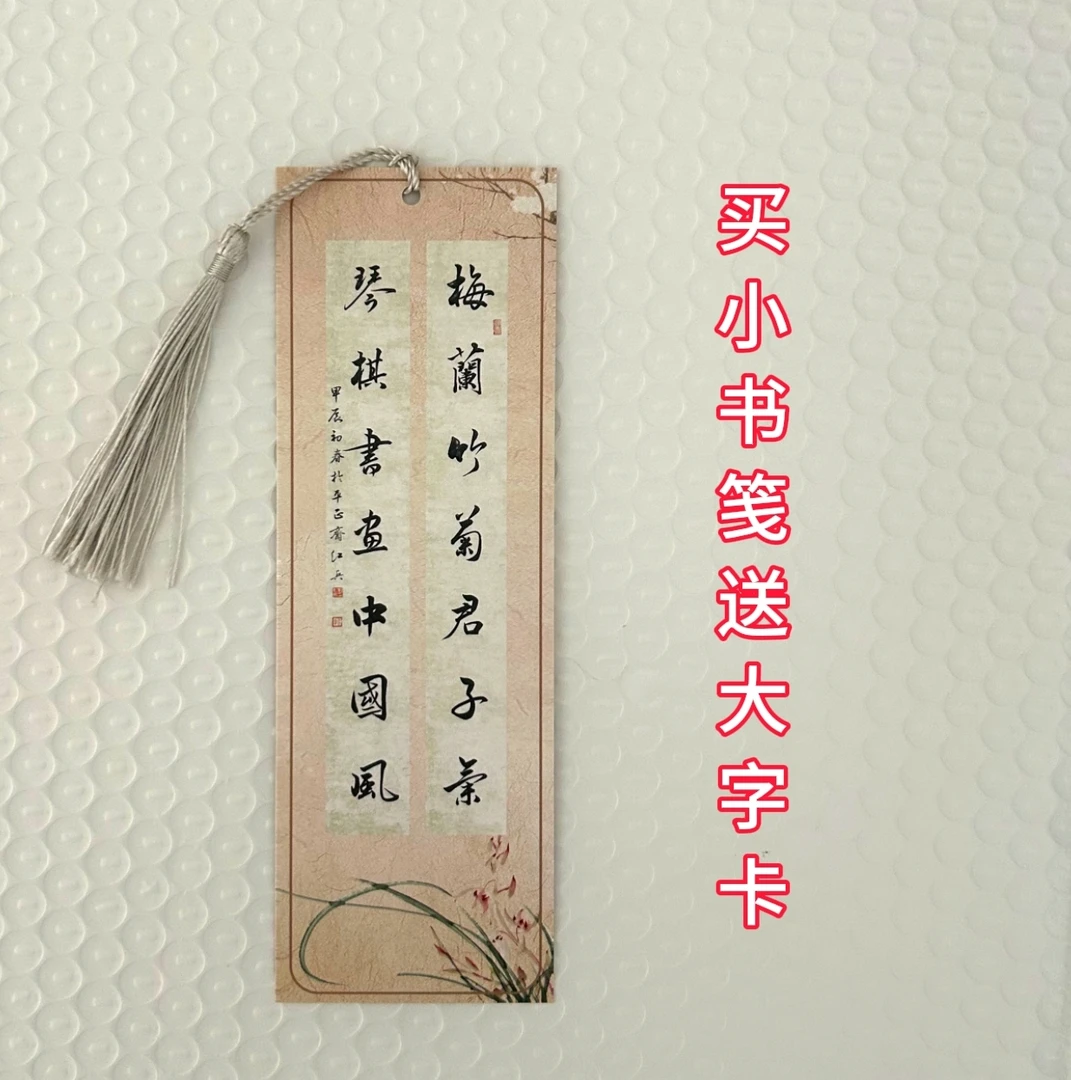 梅蘭竹菊君子氣
琴棋書畫中國風
甲辰初春於平正齋江兵
买小书笺送大字卡